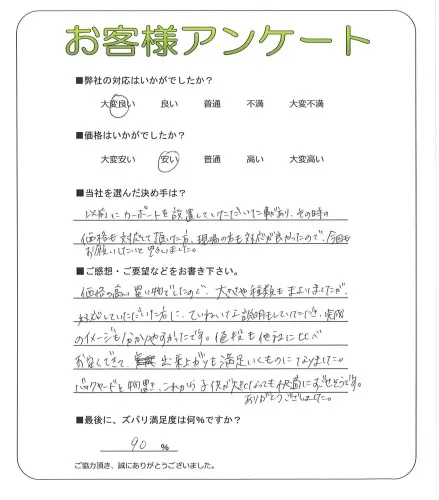 お客様アンケート
■弊社の対応はいかがでしたか？
大変良い 良い 普通 不満 大変不満
■価格はいかがでしたか？
大変安い 安い 普通 高い 大変高い
■当社を選んだ決め手は？
以前にカーポートを設置していただいた事があり、その時の
価格も対応して頂いた方、現場の方も対応が良かったので、今回も
お願いしたいと思いました。
■ご感想・ご要望などをお書き下さい。
価格の高い買い物でしたので、大きさや種類もまよいましたが
対応していただいた方に、ていねいに説明もしていただき、実際
のイメージも分かりやすかったです。値段も他社に比べ
お安くできて、出来上がりも満足いくものになりました。
バックヤードと物置き、これから子供が大きくなっても快適にすごせそうです。
ありがとうございました。
■最後に、ズバリ満足度は何%ですか？
90 %
ご協力頂き、誠にありがとうございました。